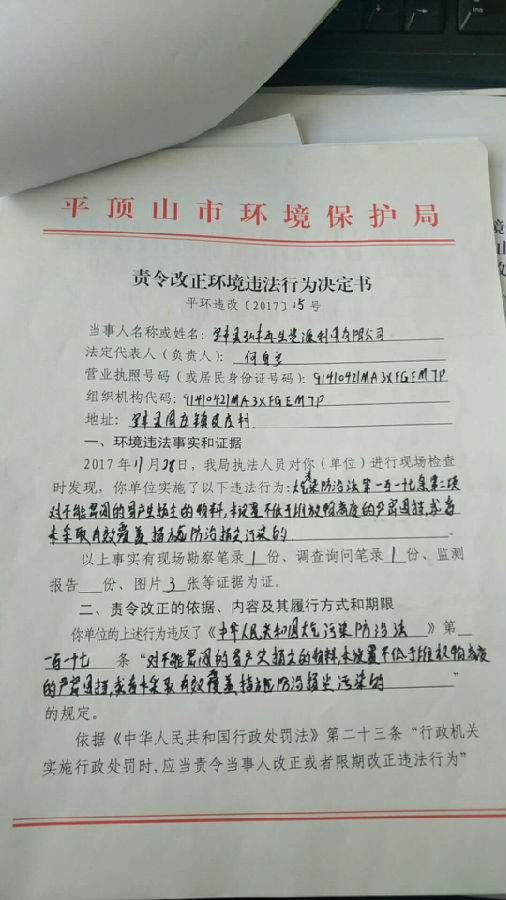 平顶山市环境保护局
责令改正环境违法行为决定书
平环违改〔2017〕15号
当事人名称或姓名：宝丰县弘丰再生资源利用有限公司
法定代表人（负责人）：何自立
营业执照号码（或居民身份证号码）：91410421MA3XFGEM7P
组织机构代码：91410421MA3XFGEM7P
地址：宝丰县周庄镇皮庄村
一、环境违法事实和证据
2017年11月28日，我局执法人员对你（单位）进行现场检查
时发现，你单位实施了以下违法行为：大气污染防治法第一百一十七条第二项
对不能密闭的易产生扬尘的物料，未设置不低于堆放物高度的严密围挡，或者
未采取有效覆盖措施防治扬尘污染的。
以上事实有现场勘察笔录1份、调查询问笔录1份、监测
报告 份、图片3张等证据为证。
二、责令改正的依据、内容及其履行方式和期限
你单位的上述行为违反了《中华人民共和国大气污染防治法》第
一百一十七条“对不能密闭的易产尘扬尘的物料，未设置不低于堆放物高度
的严密围挡，或者未采取有效覆盖措施防治扬尘污染的”
的规定。
依据《中华人民共和国行政处罚法》第二十三条“行政机关
实施行政处罚时，应当责令当事人改正或者限期改正违法行为”